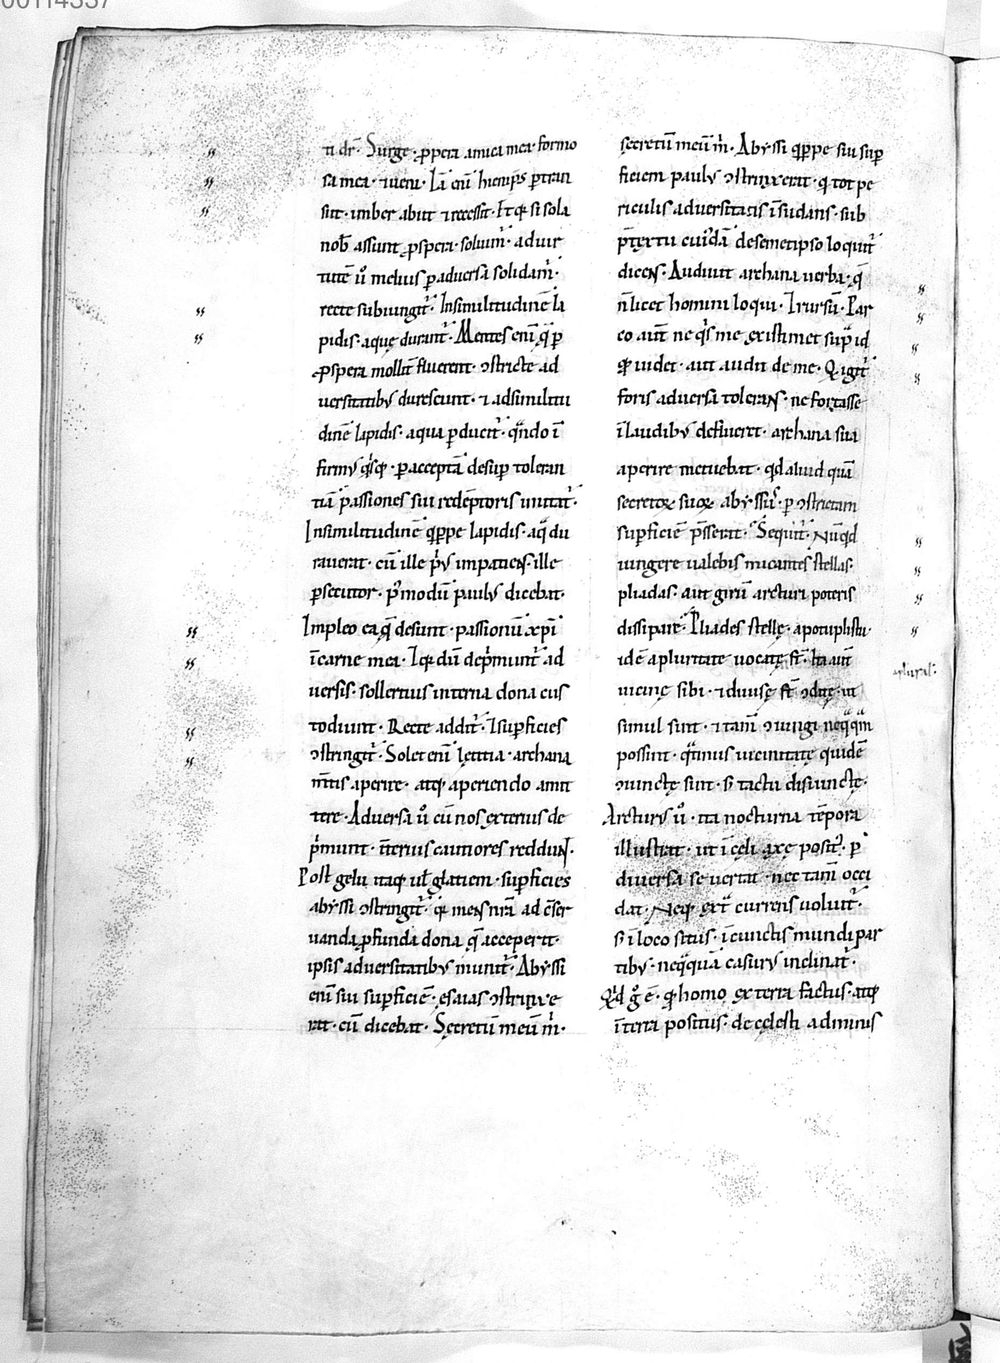 00114337
ti dr̄. Surge. ꝓpera amica mea. formo
sa mea. ⁊ueni. Iā eni̅ hiemps ꝑtran
siit. imber abiit ⁊ recessit. Et qꝫ si sola
nob̅ assunt ꝓspera. soluim᷑. aduer
tutē u̅o melius ꝑaduersa solidam᷑.
recte subiungit᷑. Insimilitudinē la
pidis. aquę durant᷑. Mentes eni̅ q̄ ꝑ
ꝓspera mollit̅ fluerent. ꝯstricte ad
uersitatibꝰ durescunt. ⁊ adsimilitu
dinē lapidis. aqua ꝑducit᷑. qn̄do ī
firmꝰ qͥsqꝫ. ꝑacceptā desuꝑ toleran
tiā passiones sui redēptoris imitat᷑.
Insimilitudinē qͥppe lapidis. aq̄ du
rauerat. cū ille pͥꝰ impatiens. ille
ꝑsecutor. pͥmodū paulꝰ dicebat.
Impleo ea q̄ desunt. passionū xp̄i
īcarne mea. Iqꝫ dū dep̄munt᷑ ad
uersis. sollertius interna dona cus
todiunt. Recte addit᷑. ⁊suꝑficies
ꝯstringit᷑. Solet eni̅ lętitia. archana
m̄tis aperire. atqꝫ aperiendo amit
tere. Aduersa u̅o cū nos exterius de
pͥmunt. īterius cautiores reddunt.
Post gelu itaqꝫ ul̄ glatiem. suꝑficies
abyssi ꝯstringit᷑. qꝫ mens nr̄a ad c̄ser
uanda ꝓfunda dona q̄ acceperit.
ipsis aduersitatibꝰ munit᷑. Abyssi
eni̅ sui suꝑficiē. esaias ꝯstrinxe
rat. cū dicebat. Secretū meū m̄.
secretū meū m̄. Abyssi qͥppe sui suꝑ
ficiem paulꝰ ꝯstrinxerat. q̄ tot pe
riculis aduersitatis īsudans. sub
p̄textu cuiꝰdā desemetipso loquit᷑
dicens. Audiuit archana uerba. q̄
n̄ licet homini loqui. Irursū. Par
co aut̄ ne qͥs me existimet supͣ id
qꝫ uidet. aut audit de me. Qͥ igit᷑
foris aduersa tolerans. ne fortasse
īlaudibꝰ deflueret. archana sua
aperire metuebat. qd aliud quā
secretoꝝ suoꝝ abyssū. ꝑ ꝯstrictam
suꝑficiē p̄sserat. Sequit᷑. Nūqͥd
iungere ualebis micantes stellas
pliadas. aut girū arcturi poteris
dissipare. Pliades stellę. apotuplistu.
idē apluritate uocatę st̄. Ita aut̄
uicinę sibi. ⁊ diuisę st̄ ꝯditę. ut
simul sint. ⁊ tam̄ ꝯiungi neqͣqͣm
possint. qͣtinus uicinitatę quidē
ꝯiunctę sint. s̄ tactu disiunctę.
Arcturꝰ u̅o. ita nocturna tēpora
illustrat. ut ī cęli axe positꝰ. ꝑ
diuersa se uertat. nec tam̄ occi
dat. Neqꝫ ext̄ currens uoluit᷑.
s̄ ī loco situs. īcunctis mundi par
tibꝰ. neqͣquā casurꝰ inclinat᷑.
Qͥd g̊ ē. qꝫ homo ex terra factus. atqꝫ
īterra positus. de cęlesti adminis